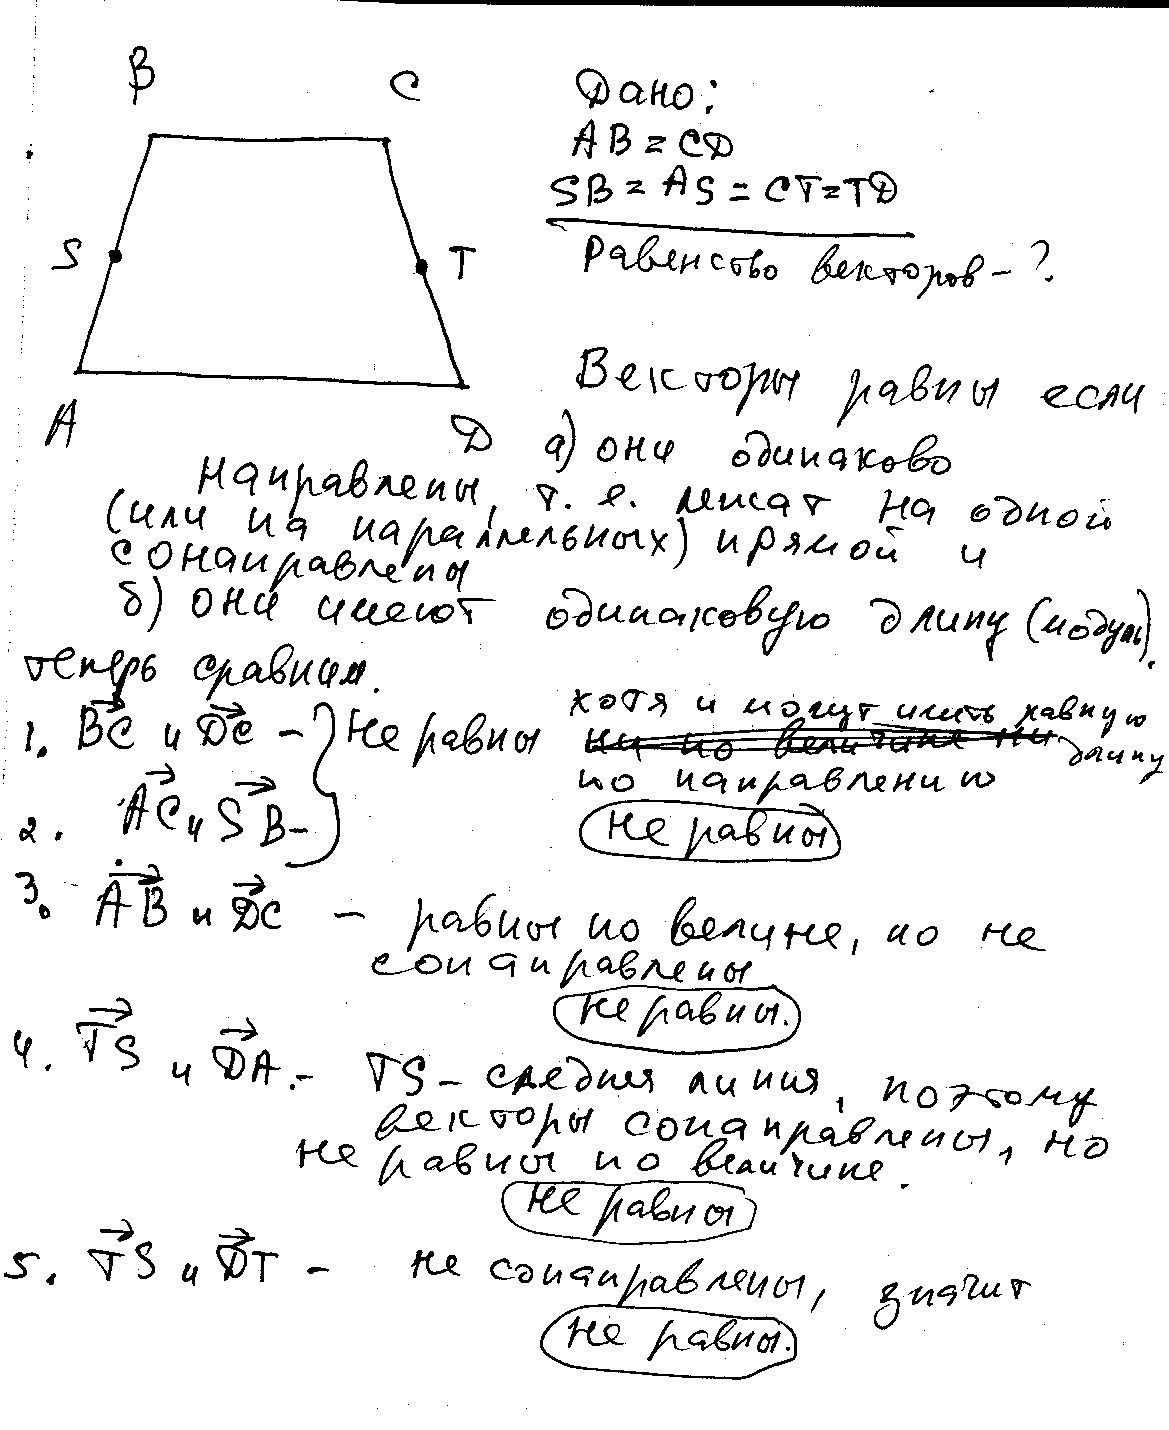 B C
Дано:
AB = CD
SB = AS = CT = TD
S T
Равенство векторов - ?
Векторы равны если
A D а) они одинаково
направлены, т. е. лежат на одной
(или на параллельных) прямой и
сонаправлены
б) они имеют одинаковую длину (модуль).
теперь сравним.
хотя и могут иметь равную
1. BC и DC - не равны ни по величине ни длину
по направлению
2. AC и SB -
не равны
3. AB и DC - равны по велине, но не
сонаправлены
не равны.
4. TS и DA. - TS - средняя линия, поэтому
векторы сонаправлены, но
не равны по величине.
не равны
5. TS и DT - не сонаправлены, значит
не равны.